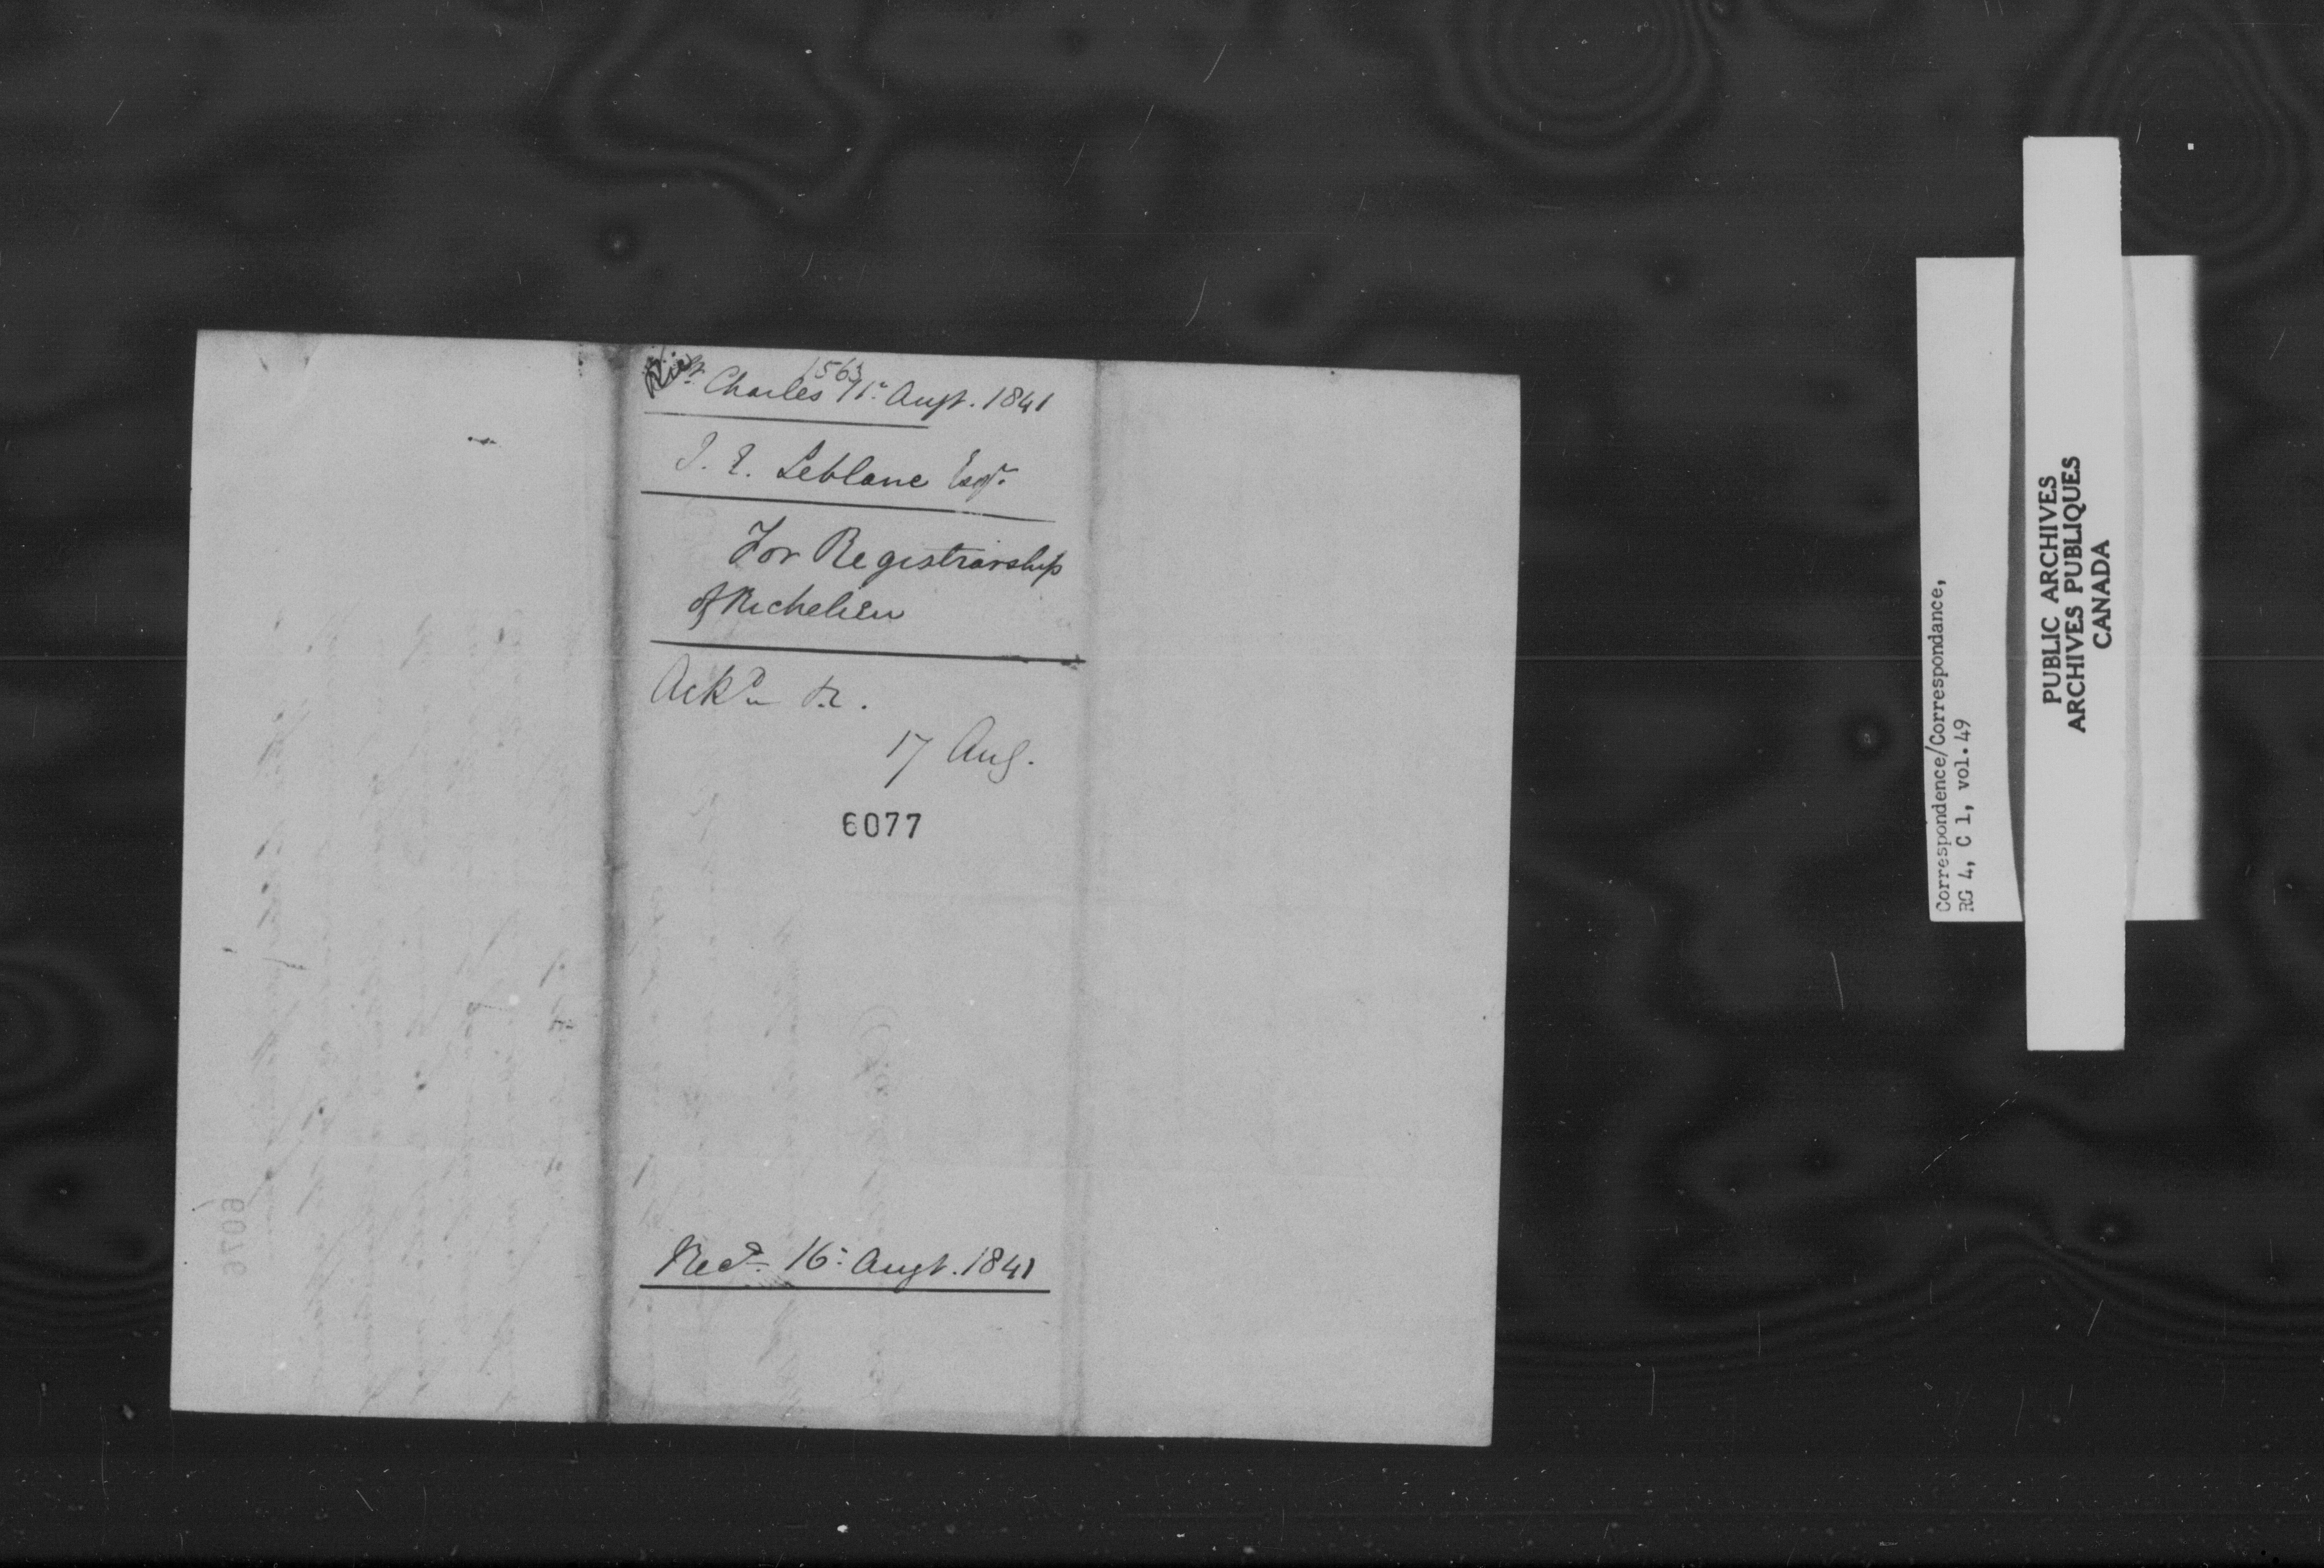 1563
St. Charles 11: Augt. 1841
J. E. Leblanc Esqr.
For Registrarship
of Richelieu
Ackd
17 Aug.
6077
Recd 16: Augt. 1841
6076
Correspondence/Correspondance,
RG 4, C 1, vol.49
PUBLIC ARCHIVES
ARCHIVES PUBLIQUES
CANADA